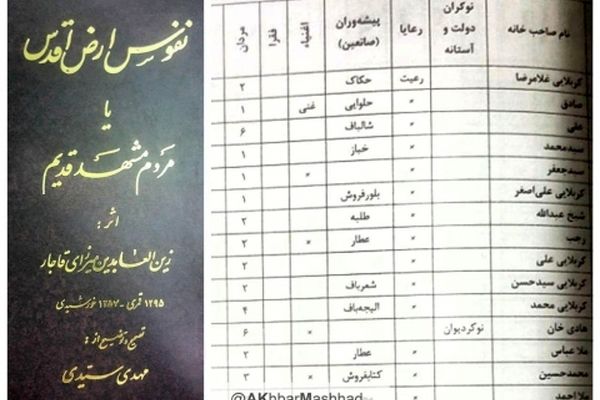 نفوس ارض اقدس
یا
مردم مشهد قدیم
اثر:
زین‌العابدین میرزای قاجار
۱۲۹۵ قمری - ۱۲۵۷ خورشیدی
تصحیح و توضیح از:
مهدی سیدی
نام صاحب خانه نوکران دولت و آستانه رعایا پیشه‌وران (صانعین) اغنیاء فقرا مردان
کربلایی غلامرضا رعیت حکاک ۲
صادق " حلوایی غنی ۱
علی " شالباف ۶
سیدمحمد " خباز ۱
سیدجعفر " " ۱
کربلایی علی‌اصغر " بلورفروش ۱
شیخ عبدالله " طلبه ۳
رجب " عطار " ۲
کربلایی علی " ۲
کربلایی سیدحسن " شعرباف ۲
کربلایی محمد " الیجه‌باف ۴
هادی خان نوکر دیوان " ۶
ملا عباس " عطار ۲
محمدحسین " کتابفروش " ۳
ملا احمد "
@AKhbarMashhad